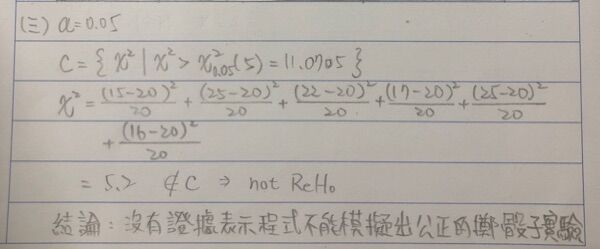 (三) α=0.05
C = { χ² | χ² > χ²₀.₀₅(5) = 11.0705 }
χ² = (15-20)²/20 + (25-20)²/20 + (22-20)²/20 + (17-20)²/20 + (25-20)²/20
+ (16-20)²/20
= 5.2 ∉ C ⇒ not ReH₀
結論：沒有證據表示程式不能模擬出公正的擲骰子實驗